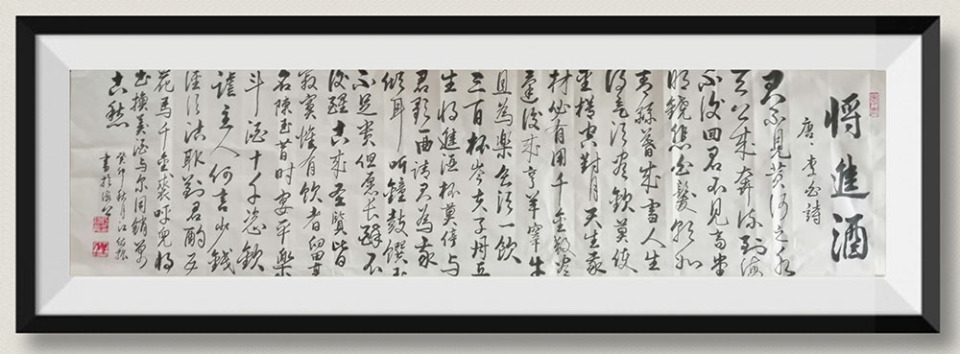 將進酒
唐·李白詩
君不見黃河之水
天上來奔流到海
不復回君不見高堂
明鏡悲白髮朝如
青絲暮成雪人生
得意須盡歡莫使
金樽空對月天生我
材必有用千金散盡
還復來烹羊宰牛
且為樂會須一飲
三百杯岑夫子丹丘
生將進酒杯莫停與
君歌一曲請君為我
傾耳聽鐘鼓饌玉
不足貴但愿長醉不
復醒古來聖賢皆
寂寞惟有飲者留其
名陳王昔時宴平樂
斗酒十千恣歡
謔主人何言少錢
徑須沽取對君酌五
花馬千金裘呼兒將
出換美酒与尔同銷萬
古愁
癸卯秋月江
書於海上